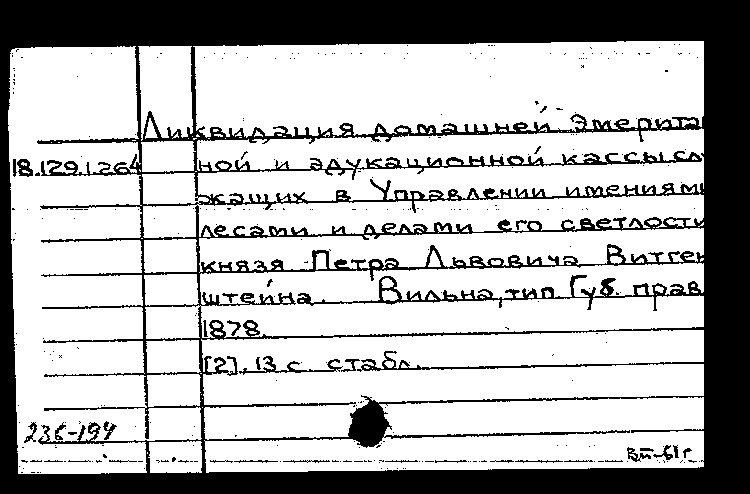 Ликвидация домашней эмерита
18.129.1.264 ной и эдукационной кассы слу
жащих в Управлении имениями
лесами и делами его светлости
князя Петра Львовича Витген
штейна. Вильна, тип Губ. прав.
1878.
[2], 13 с. с табл.
236-194
Вп-61г